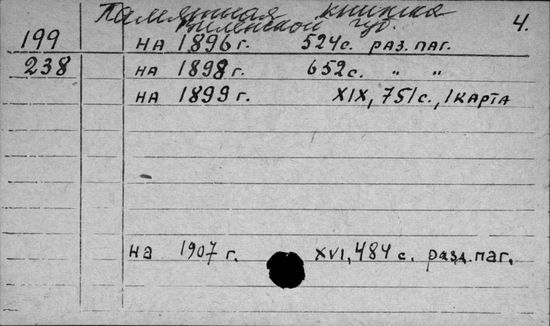 Памятная книжка 4.
Виленской губ.
199 на 1896 г. 524 с. раз. паг.
238 на 1898 г. 652 с. " "
на 1899 г. XIX, 751 с., 1 карта
на 1907 г. XVI, 484 с. разд. паг.